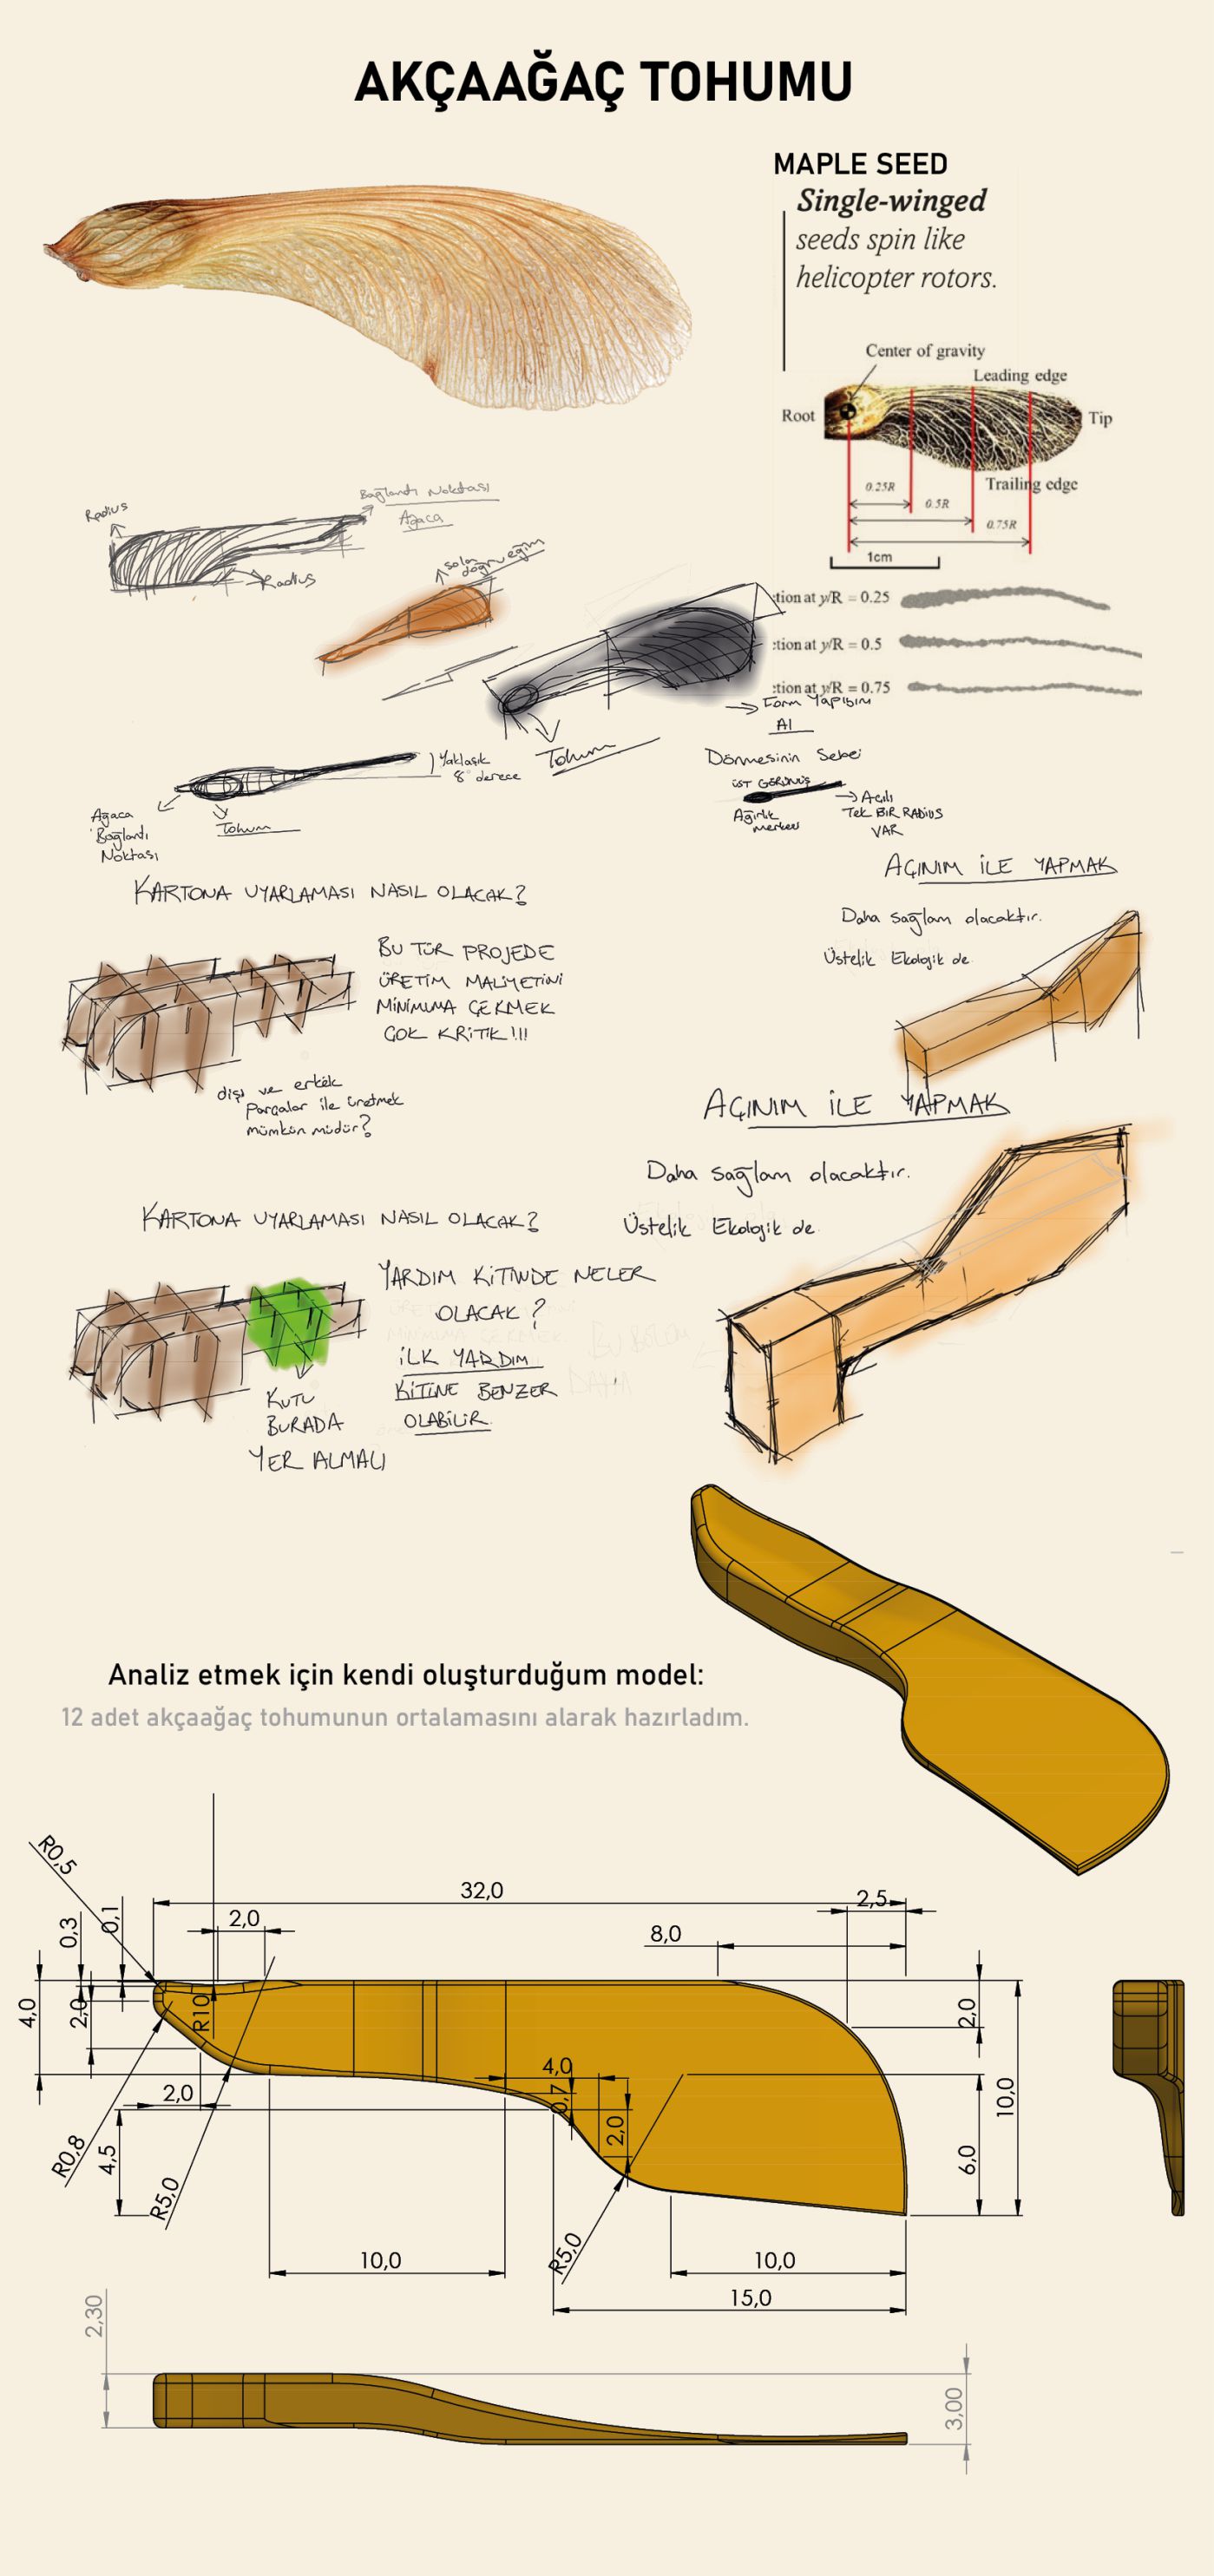 AKÇAAĞAÇ TOHUMU
MAPLE SEED
Single-winged
seeds spin like
helicopter rotors.
Center of gravity
Leading edge
Root
Tip
Trailing edge
0.25R
0.5R
0.75R
1cm
Radius
Bağlantı Noktası
Ağaca
Radius
sola
doğru eğim
tion at y/R = 0.25
tion at y/R = 0.5
tion at y/R = 0.75
Form Yapısını
Al
Tohum
Yaklaşık
8° derece
Ağaca
Bağlantı
Noktası
Tohum
Dönmesinin Sebebi
ÜST GÖRÜNÜŞ
Ağırlık
merkezi
Açılı
TEK BİR RADİUS
VAR
KARTONA UYARLAMASI NASIL OLACAK?
BU TÜR PROJEDE
ÜRETİM MALİYETİNİ
MİNİMUMA ÇEKMEK
ÇOK KRİTİK!!!
dişi ve erkek
Parçalar ile üretmek
mümkün müdür?
AÇINIM İLE YAPMAK
Daha sağlam olacaktır.
Üstelik Ekolojik de.
AÇINIM İLE YAPMAK
Daha sağlam olacaktır.
Üstelik Ekolojik de.
KARTONA UYARLAMASI NASIL OLACAK?
YARDIM KİTİNDE NELER
OLACAK?
İLK YARDIM
KİTİNE BENZER
OLABİLİR.
KUTU
BURADA
YER ALMALI
Analiz etmek için kendi oluşturduğum model:
12 adet akçaağaç tohumunun ortalamasını alarak hazırladım.
R0,5
32,0
2,5
0,1
0,3
2,0
8,0
4,0
2,0
R10
2,0
10,0
4,0
0,7
2,0
2,0
4,5
6,0
R0,8
R5,0
R5,0
10,0
10,0
15,0
2,30
3,00